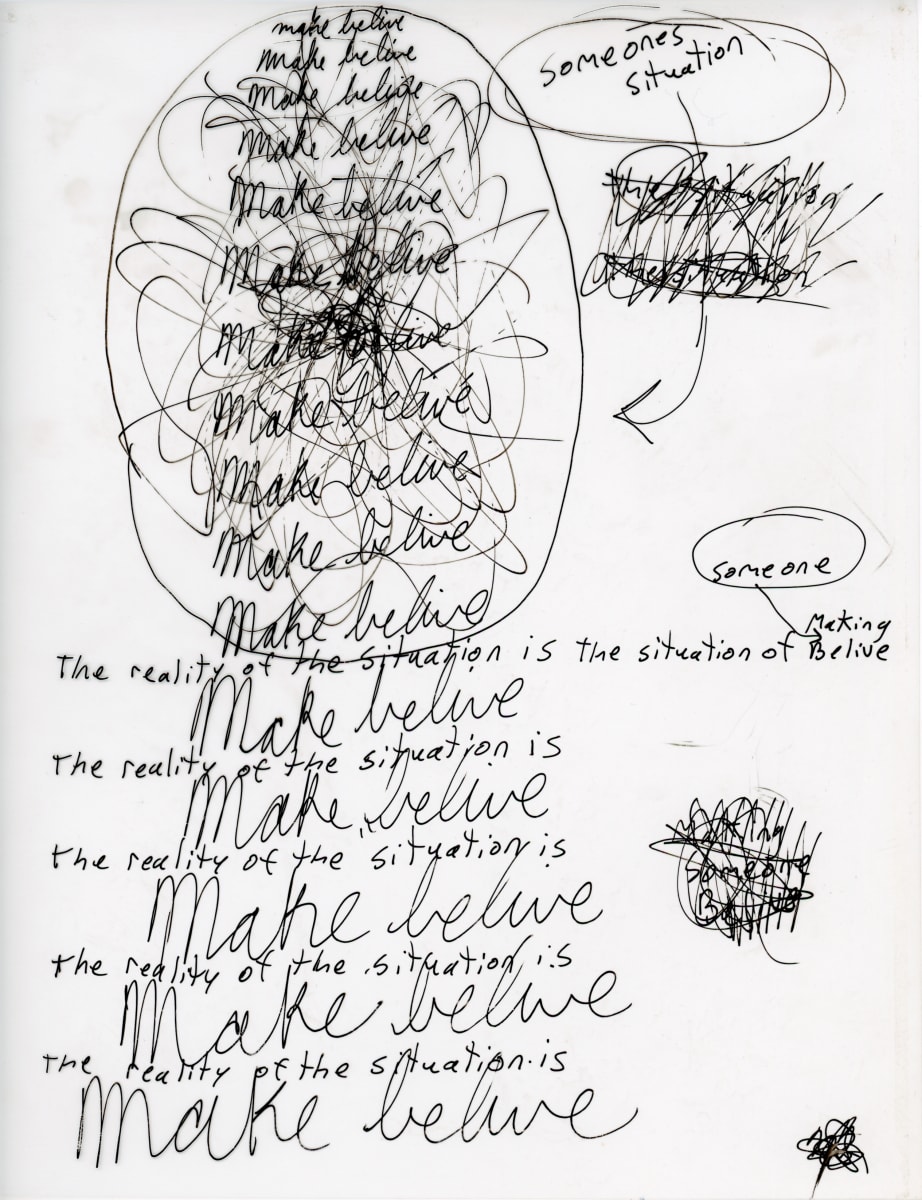 make belive
make belive
Make belive
Make belive
Make belive
Make belive
Make belive
Make belive
Make belive
Make belive
Make belive
someones
situation
the situation
the situation
someone
Making
The reality of the situation is the situation of Belive
Make belive
The reality of the situation is
Make belive
the reality of the situation is
Make belive
the reality of the situation is
Make belive
The reality of the situation is
Make belive
Making
Someone
Belive